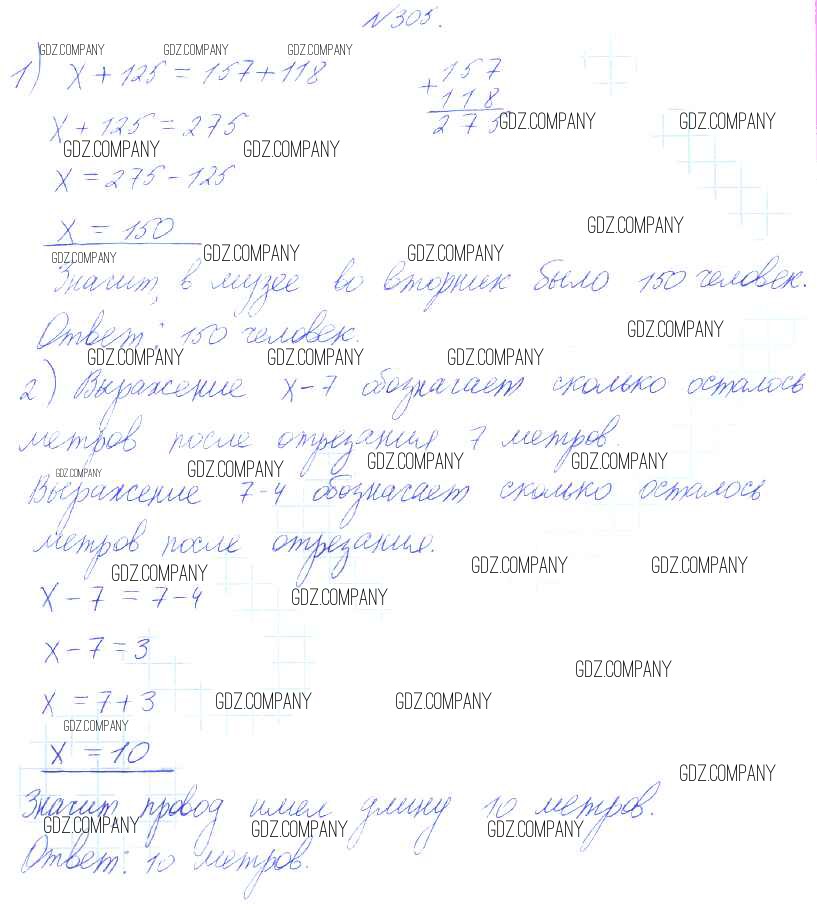 №305.
GDZ.COMPANY GDZ.COMPANY GDZ.COMPANY
1) x + 125 = 157 + 118
+ 157
118
275
GDZ.COMPANY GDZ.COMPANY
x + 125 = 275
GDZ.COMPANY GDZ.COMPANY
x = 275 - 125
x = 150
GDZ.COMPANY
GDZ.COMPANY GDZ.COMPANY GDZ.COMPANY
Значит, в музее во вторник было 150 человек.
Ответ: 150 человек.
GDZ.COMPANY
GDZ.COMPANY GDZ.COMPANY GDZ.COMPANY
2) Выражение x-7 обозначает сколько осталось
метров после отрезания 7 метров.
GDZ.COMPANY GDZ.COMPANY GDZ.COMPANY GDZ.COMPANY
Выражение 7-4 обозначает сколько осталось
метров после отрезания.
GDZ.COMPANY GDZ.COMPANY GDZ.COMPANY
x - 7 = 7 - 4
GDZ.COMPANY
x - 7 = 3
GDZ.COMPANY
x = 7 + 3
GDZ.COMPANY GDZ.COMPANY
GDZ.COMPANY
x = 10
GDZ.COMPANY
Значит провод имел длину 10 метров.
GDZ.COMPANY GDZ.COMPANY GDZ.COMPANY
Ответ: 10 метров.